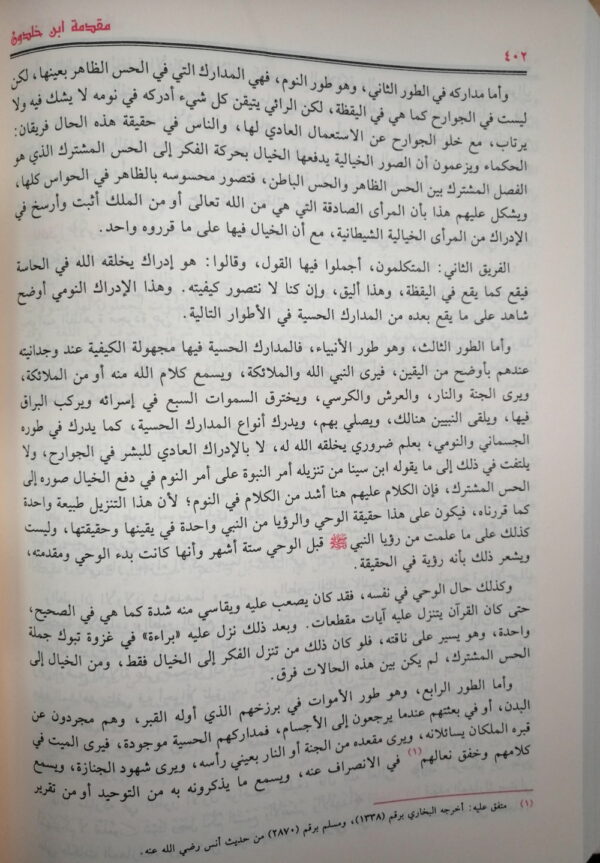 مقدمة ابن خلدون
٤٠٢
وأما مداركه في الطور الثاني، وهو طور النوم، فهي المدارك التي في الحس الظاهر بعينها، لكن
ليست في الجوارح كما هي في اليقظة، لكن الرائي يتيقن كل شيء أدركه في نومه لا يشك فيه ولا
يرتاب، مع خلو الجوارح عن الاستعمال العادي لها، والناس في حقيقة هذه الحال فريقان:
الحكماء ويزعمون أن الصور الخيالية يدفعها الخيال بحركة الفكر إلى الحس المشترك الذي هو
الفصل المشترك بين الحس الظاهر والحس الباطن، فتصور محسوسه بالظاهر في الحواس كلها،
ويشكل عليهم هذا بأن المرأى الصادقة التي هي من الله تعالى أو من الملك أثبت وأرسخ في
الإدراك من المرأى الخيالية الشيطانية، مع أن الخيال فيها على ما قرروه واحد.
الفريق الثاني: المتكلمون، أجملوا فيها القول، وقالوا: هو إدراك يخلقه الله في الحاسة
فيقع كما يقع في اليقظة، وهذا أليق، وإن كنا لا نتصور كيفيته. وهذا الإدراك النومي أوضح
شاهد على ما يقع بعده من المدارك الحسية في الأطوار التالية.
وأما الطور الثالث، وهو طور الأنبياء، فالمدارك الحسية فيها مجهولة الكيفية عند وجدانيته
عندهم بأوضح من اليقين، فيرى النبي الله والملائكة، ويسمع كلام الله منه أو من الملائكة،
ويرى الجنة والنار، والعرش والكرسي، ويخترق السموات السبع في إسرائه ويركب البراق
فيها، ويلقى النبيين هنالك، ويصلي بهم، ويدرك أنواع المدارك الحسية، كما يدرك في طوره
الجسماني والنومي، بعلم ضروري يخلقه الله له، لا بالإدراك العادي للبشر في الجوارح، ولا
يلتفت في ذلك إلى ما يقوله ابن سينا من تنزيله أمر النبوة على أمر النوم في دفع الخيال صوره إلى
الحس المشترك، فإن الكلام عليهم هنا أشد من الكلام في النوم؛ لأن هذا التنزيل طبيعة واحدة
كما قررناه، فيكون على هذا حقيقة الوحي والرؤيا من النبي واحدة في يقينها وحقيقتها، وليست
كذلك على ما علمت من رؤيا النبي ﷺ قبل الوحي ستة أشهر وأنها كانت بدء الوحي ومقدمته،
ويشعر ذلك بأنه رؤية في الحقيقة.
وكذلك حال الوحي في نفسه، فقد كان يصعب عليه ويقاسي منه شدة كما هي في الصحيح،
حتى كان القرآن يتنزل عليه آيات مقطعات. وبعد ذلك نزل عليه «براءة» في غزوة تبوك جملة
واحدة، وهو يسير على ناقته، فلو كان ذلك من تنزل الفكر إلى الخيال فقط، ومن الخيال إلى
الحس المشترك، لم يكن بين هذه الحالات فرق.
وأما الطور الرابع، وهو طور الأموات في برزخهم الذي أوله القبر، وهم مجردون عن
البدن، أو في بعثتهم عندما يرجعون إلى الأجسام، فمداركهم الحسية موجودة، فيرى الميت في
قبره الملكان يسائلانه، ويرى مقعده من الجنة أو النار بعيني رأسه، ويرى شهود الجنازة، ويسمع
كلامهم وخفق نعالهم(١) في الانصراف عنه، ويسمع ما يذكرونه به من التوحيد أو من تقرير
(١) متفق عليه: أخرجه البخاري برقم (١٣٣٨)، ومسلم برقم (٢٨٧٠) من حديث أنس رضي الله عنه.